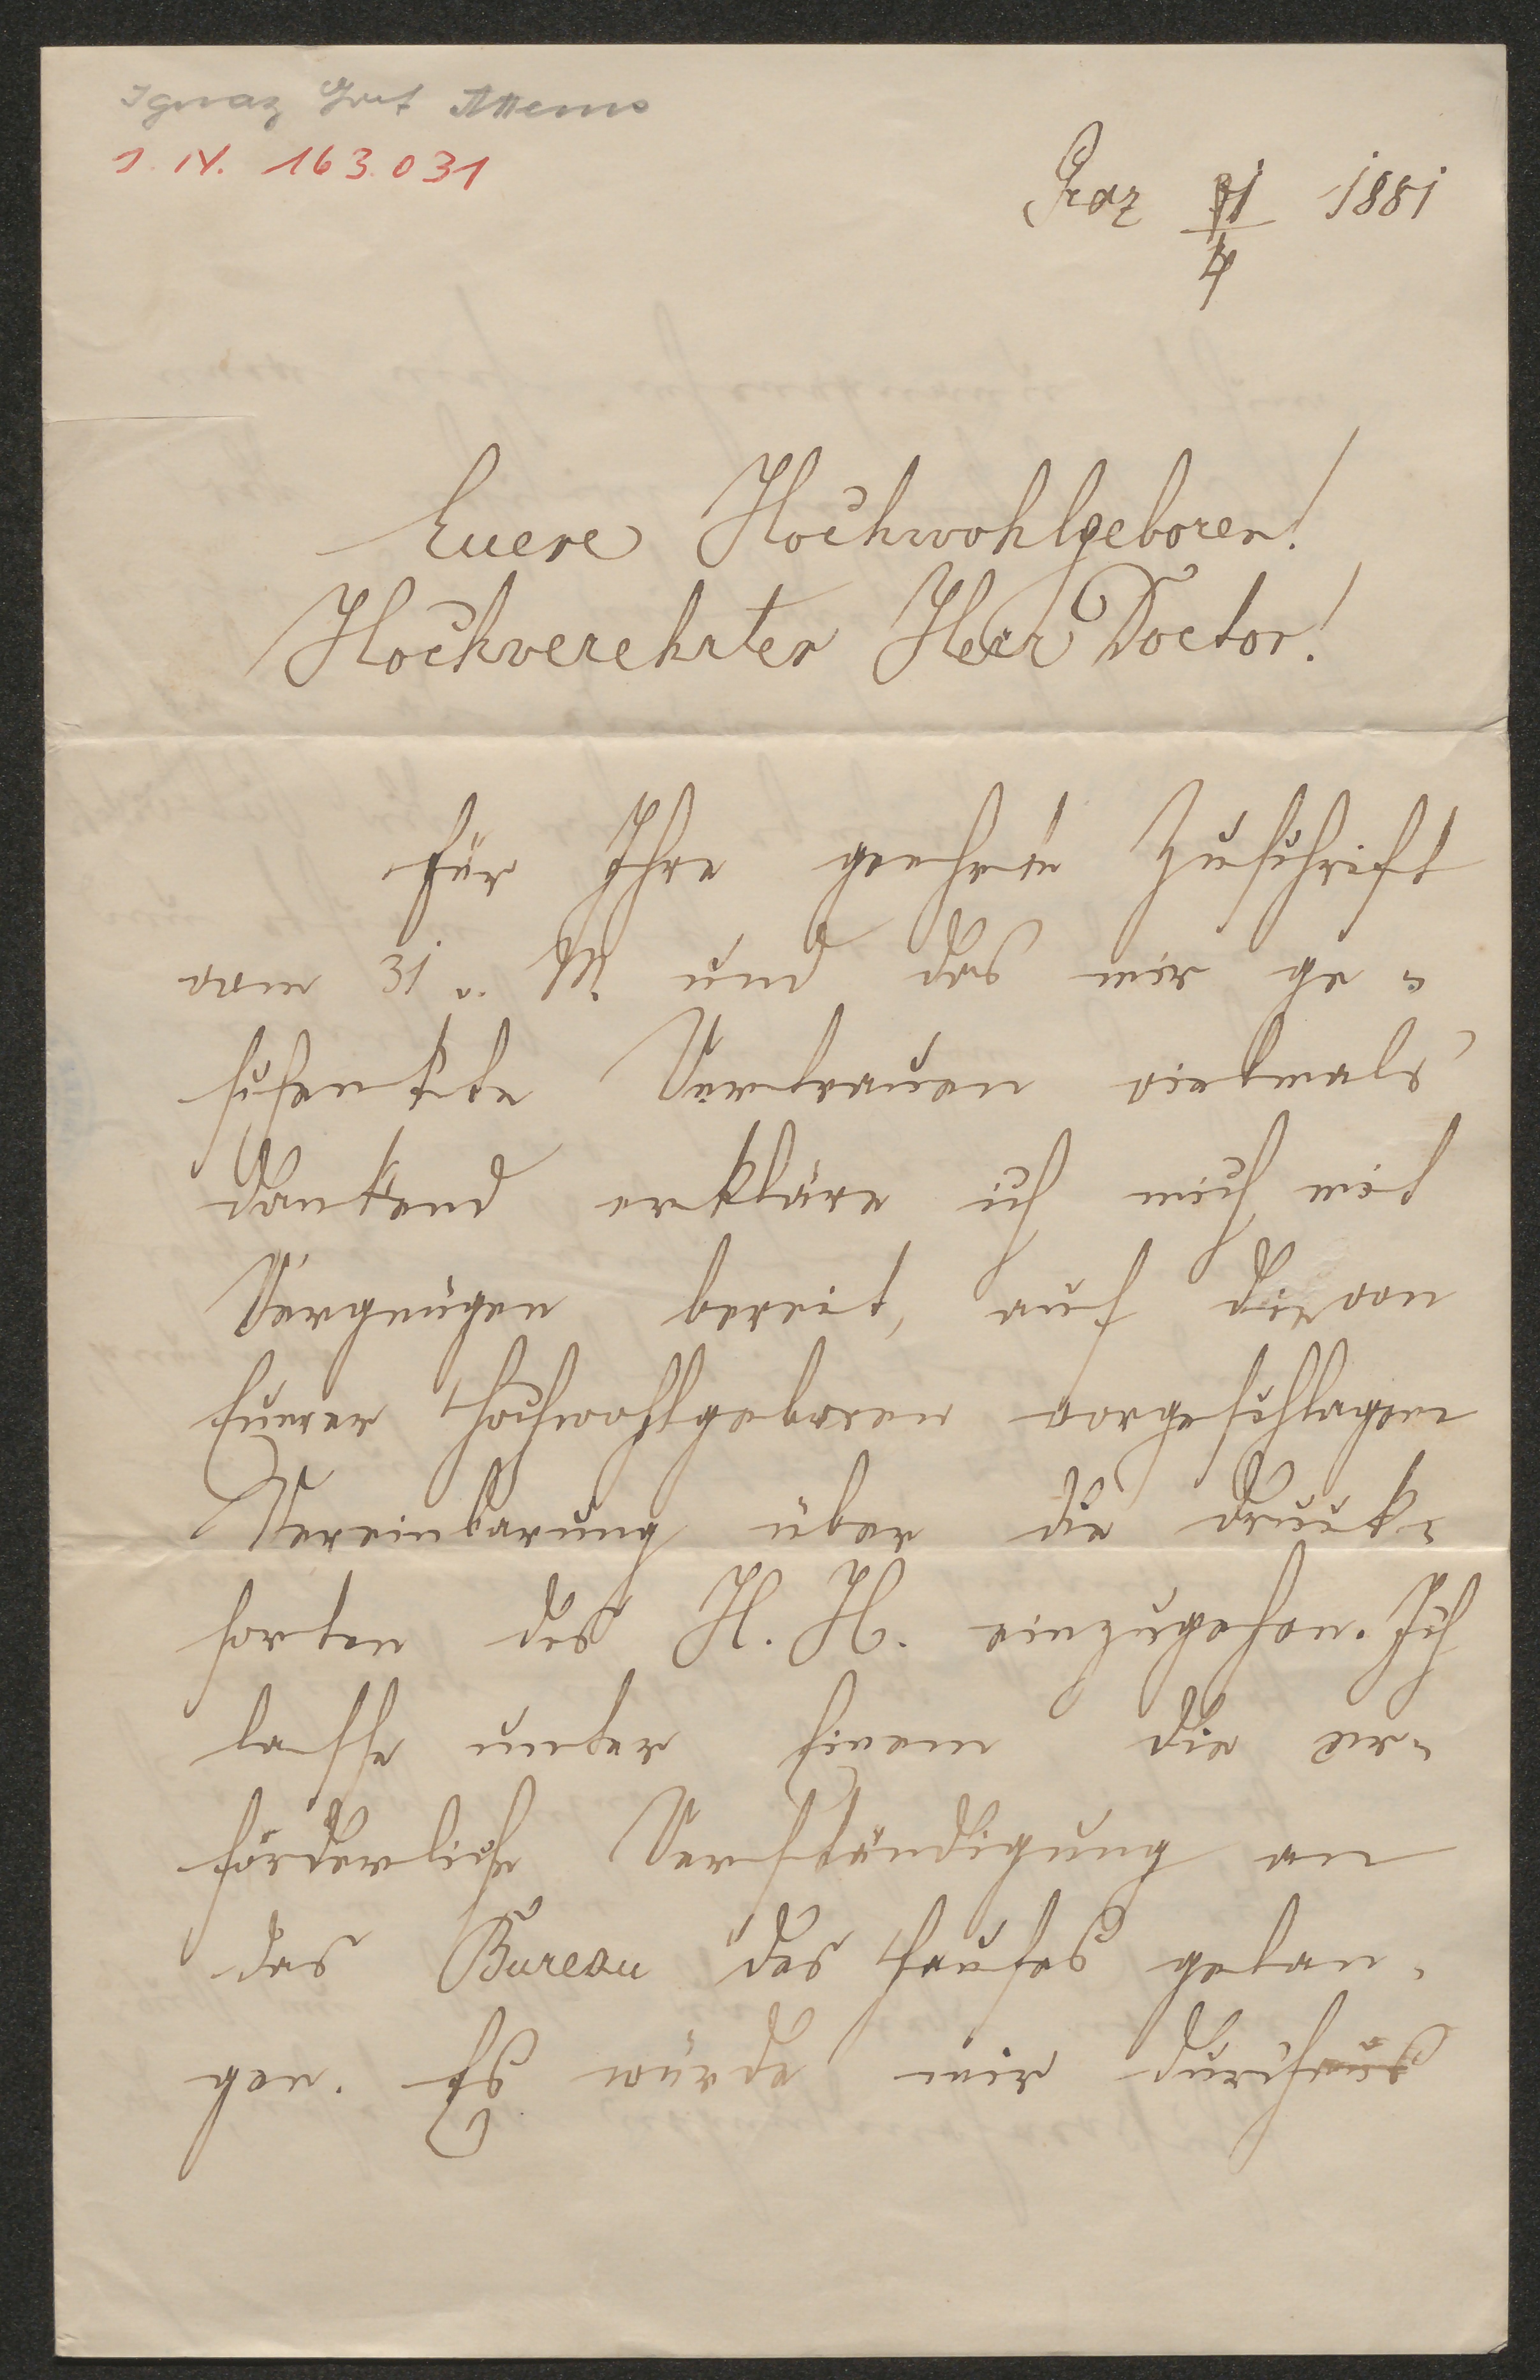 Ignaz Graf Attems
J. N. 163.031
Graz 1/4 1881
Euere Hochwohlgeboren!
Hochverehrter Herr Doctor!
Für Ihre geehrte Zuschrift
vom 31 v. M. und das mir ge=
schenkte Vertrauen vielmals
dankend erkläre ich mich mit
Vergnügen bereit, auf die von
Euerer Hochwohlgeboren vorgeschlagene
Vereinbarung über die Druck=
sorten des H. H. einzugehen. Ich
lasse unter Einem die er=
forderliche Verständigung an
das Bureau des Hauses gelan=
gen. Es würde mir durchaus